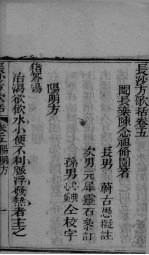 長沙方歌括卷五
閩長樂陳念祖修園著
長男 蔚古愚擬註
次男 元犀靈石參訂
孫男 心典 心蘭 全校字
陽明方
猪苓湯
治渴欲飲水小便不利脈浮發熱者主之